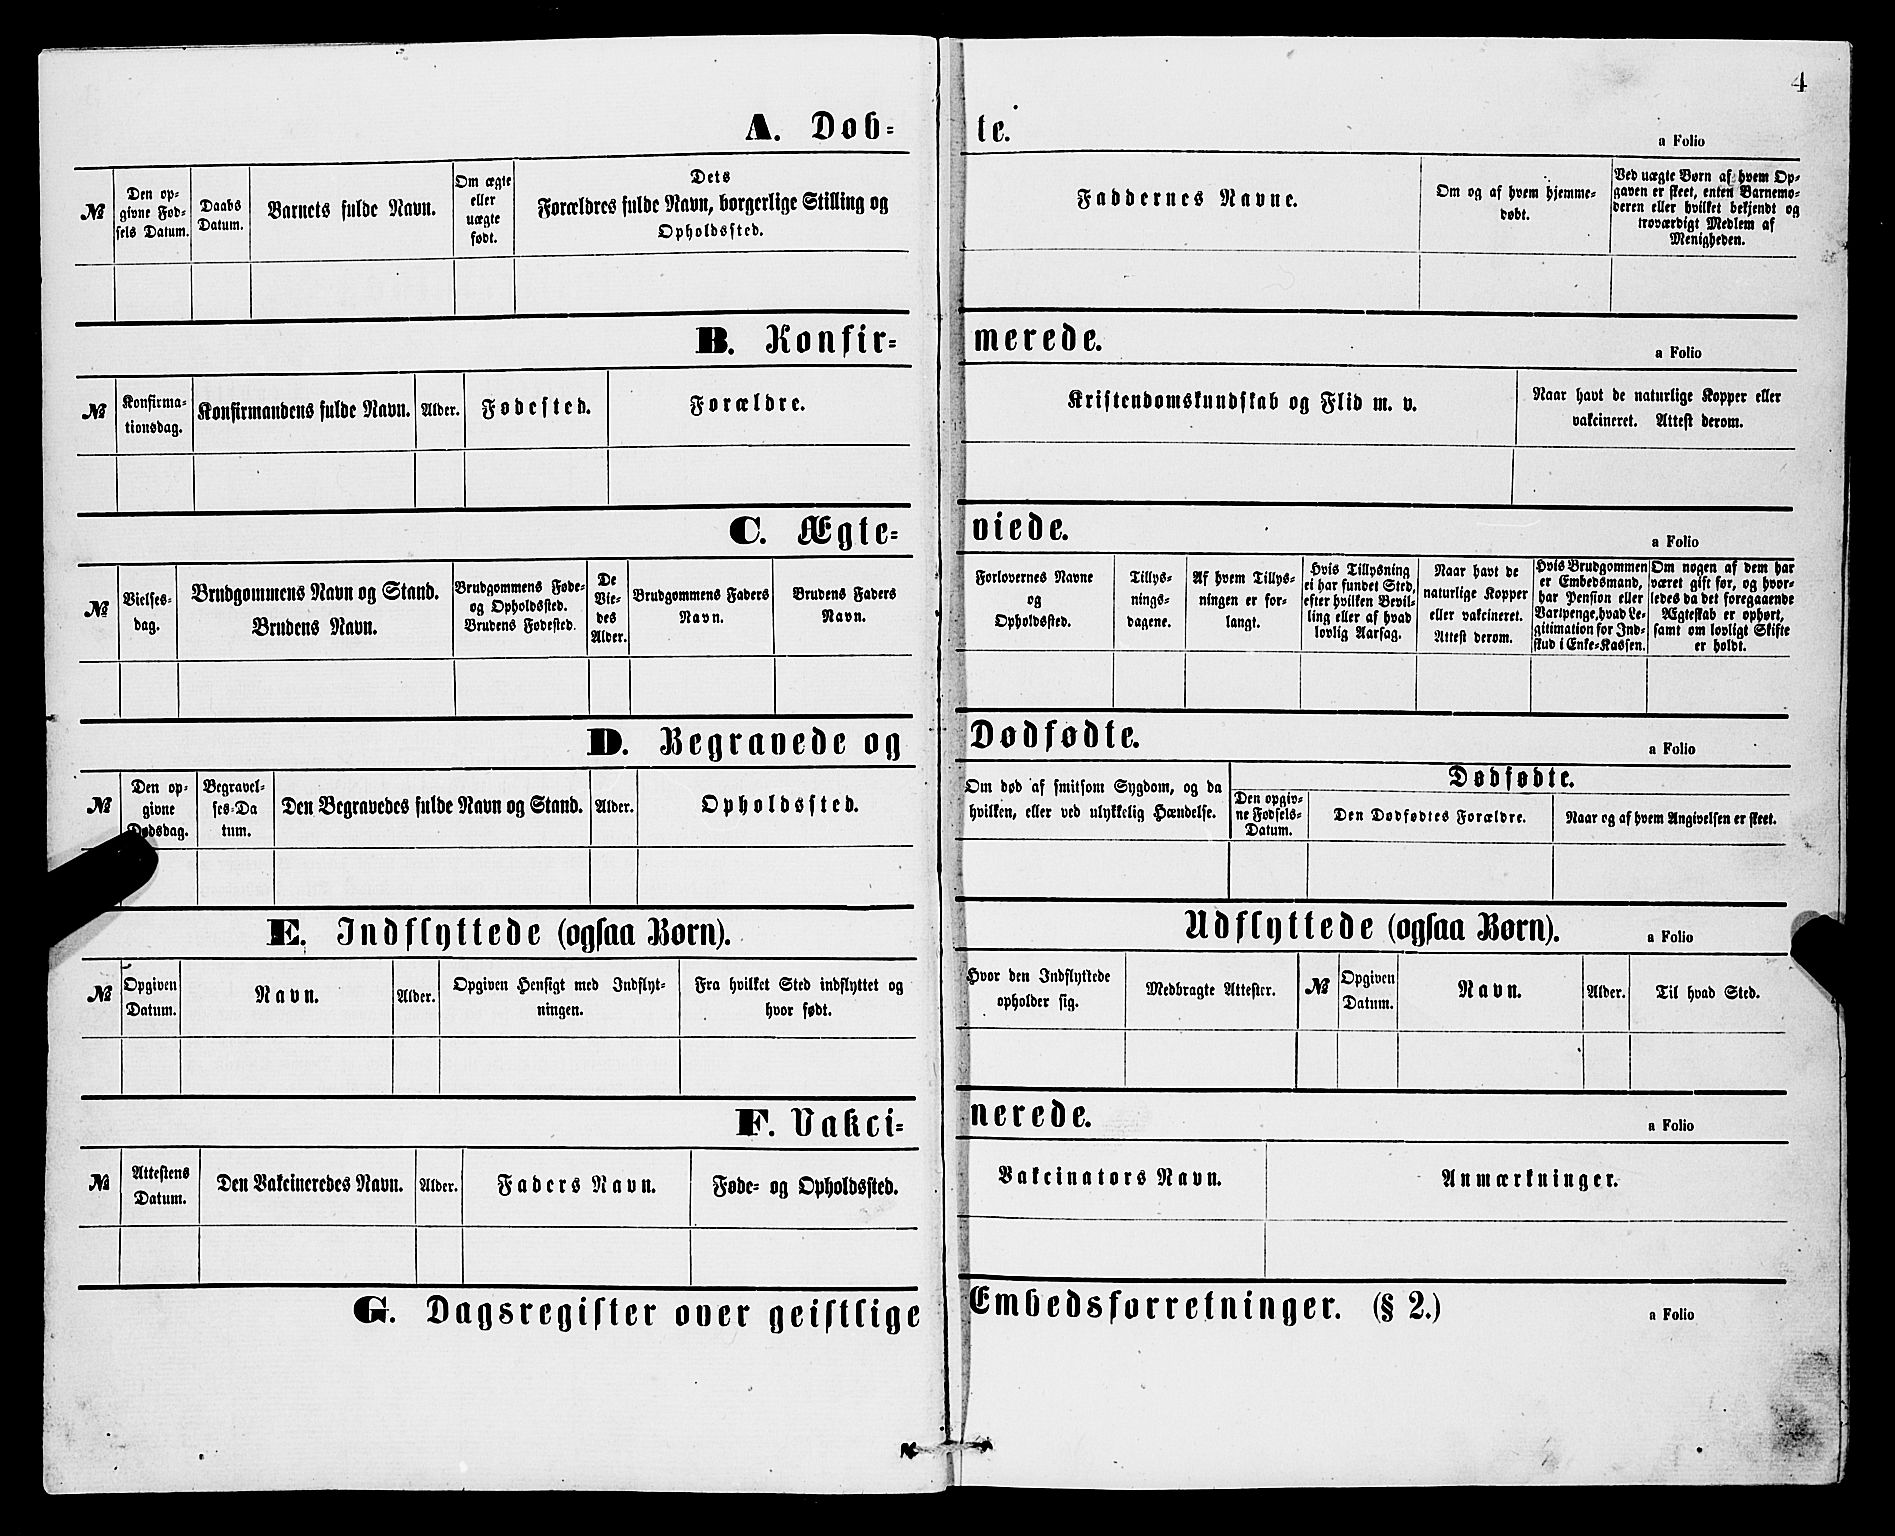 4
A. Døb- te.
a Folio
№
Den op-
givne Fød-
sels Datum.
Daabs
Datum.
Barnets fulde Navn.
Om ægte
eller
uægte
født.
Dets
Forældres fulde Navn, borgerlige Stilling og
Opholdssted.
Faddernes Navne.
Om og af hvem hjemme-
døbt.
Ved uægte Børn af hvem Op-
gaven er skeet, enten Barnemo-
deren eller hvilket bekjendt og
troværdigt Medlem af
Menigheden.
B. Konfir- merede.
a Folio
№
Konfirma-
tionsdag.
Konfirmandens fulde Navn.
Alder.
Fødested.
Forældre.
Kristendomskundskab og Flid m. v.
Naar havt de naturlige Kopper eller
vakcineret. Attest derom.
C. Ægte- viede.
a Folio
№
Vielses-
dag.
Brudgommens Navn og Stand.
Brudens Navn.
Brudgommens Føde-
og Opholdssted.
Brudens Fødested.
De
Vie-
des
Alder.
Brudgommens Faders
Navn.
Brudens Faders
Navn.
Forlovernes Navne
og
Opholdssted.
Tillys-
nings-
dagene.
Af hvem Tillys-
ningen er for-
langt.
Hvis Tillysning
ei har fundet Sted,
efter hvilken Bevil-
ling eller af hvad
lovlig Aarsag.
Naar havt de
naturlige Kopper
eller vakcineret.
Attest derom.
Hvis Brudgommen
er Embedsmand,
har Pension eller
Vartpenge, hvad Le-
gitimation for Ind-
skud i Enke-Kassen.
Om nogen af dem har
været gift før, og hvor-
ledes da det foregaaende
Ægteskab er ophørt,
samt om lovligt Skifte
er holdt.
D. Begravede og Dødfødte.
a Folio
№
Den op-
givne
Dødsdag.
Begravel-
ses-Da
tum.
Den Begravedes fulde Navn og Stand.
Alder.
Opholdssted.
Om død af smitsom Sygdom, og da
hvilken, eller ved ulykkelig Hændelse.
Dødfødte.
Den opgiv-
ne Fødsels-
Datum.
Den Dødfødtes Forældre.
Naar og af hvem Angivelsen er skeet.
E. Indflyttede (ogsaa Børn).
Udflyttede (ogsaa Børn).
a Folio
№
Opgiven
Datum.
Navn.
Alder.
Opgiven Hensigt med Indflyt-
ningen.
Fra hvilket Sted indflyttet og
hvor født.
Hvor den Indflyttede
opholder sig.
Medbragte Attester.
№
Opgiven
Datum.
Navn.
Alder.
Til hvad Sted.
F. Vakci- nerede.
a Folio
№
Attestens
Datum.
Den Vakcineredes Navn.
Alder.
Faders Navn.
Føde- og Opholdssted.
Vakcinators Navn.
Anmærkninger.
G. Dagsregister over geistlige Embedsforretninger. (§ 2.)
a Folio